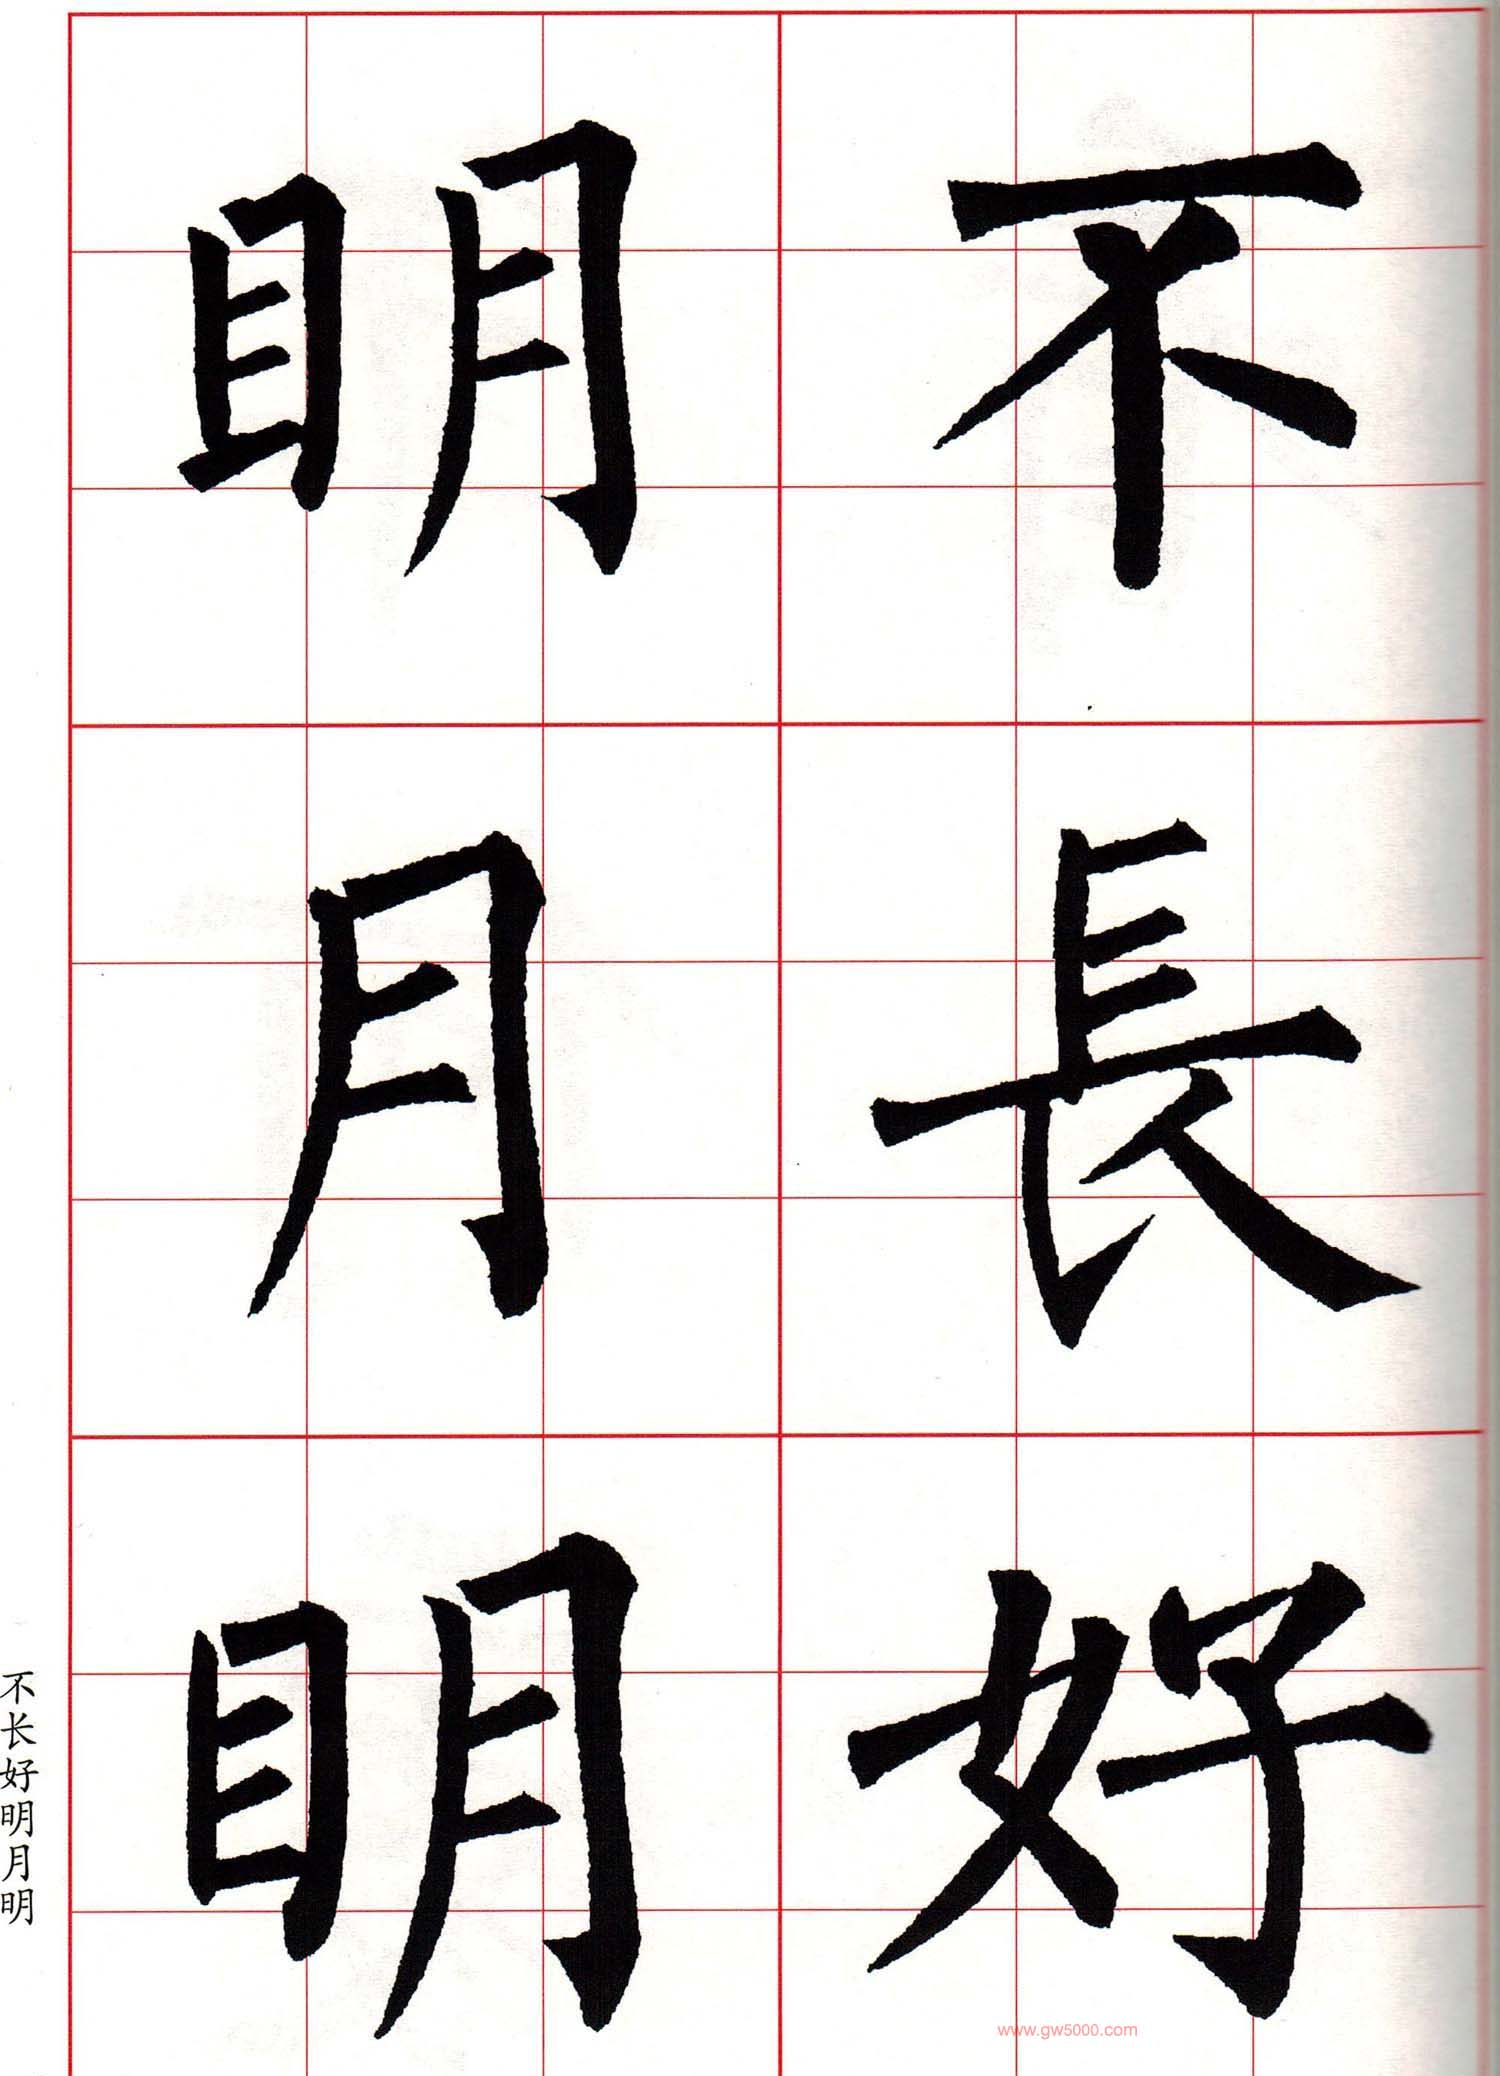 不長好
明月明
不长好明月明
www.gw5000.com